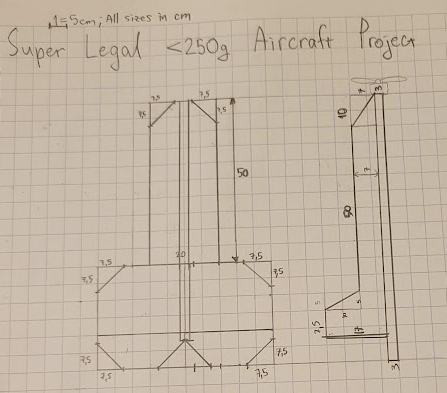 1=5cm; All sizes in cm
Super Legal <250g Aircraft Project
7,5 7,5
7,5 7,5
50
7 3
10
7
50
7,5 20 7,5
7,5 7,5
5 5
7,5
17
7,5 7,5
7,5 7,5
3